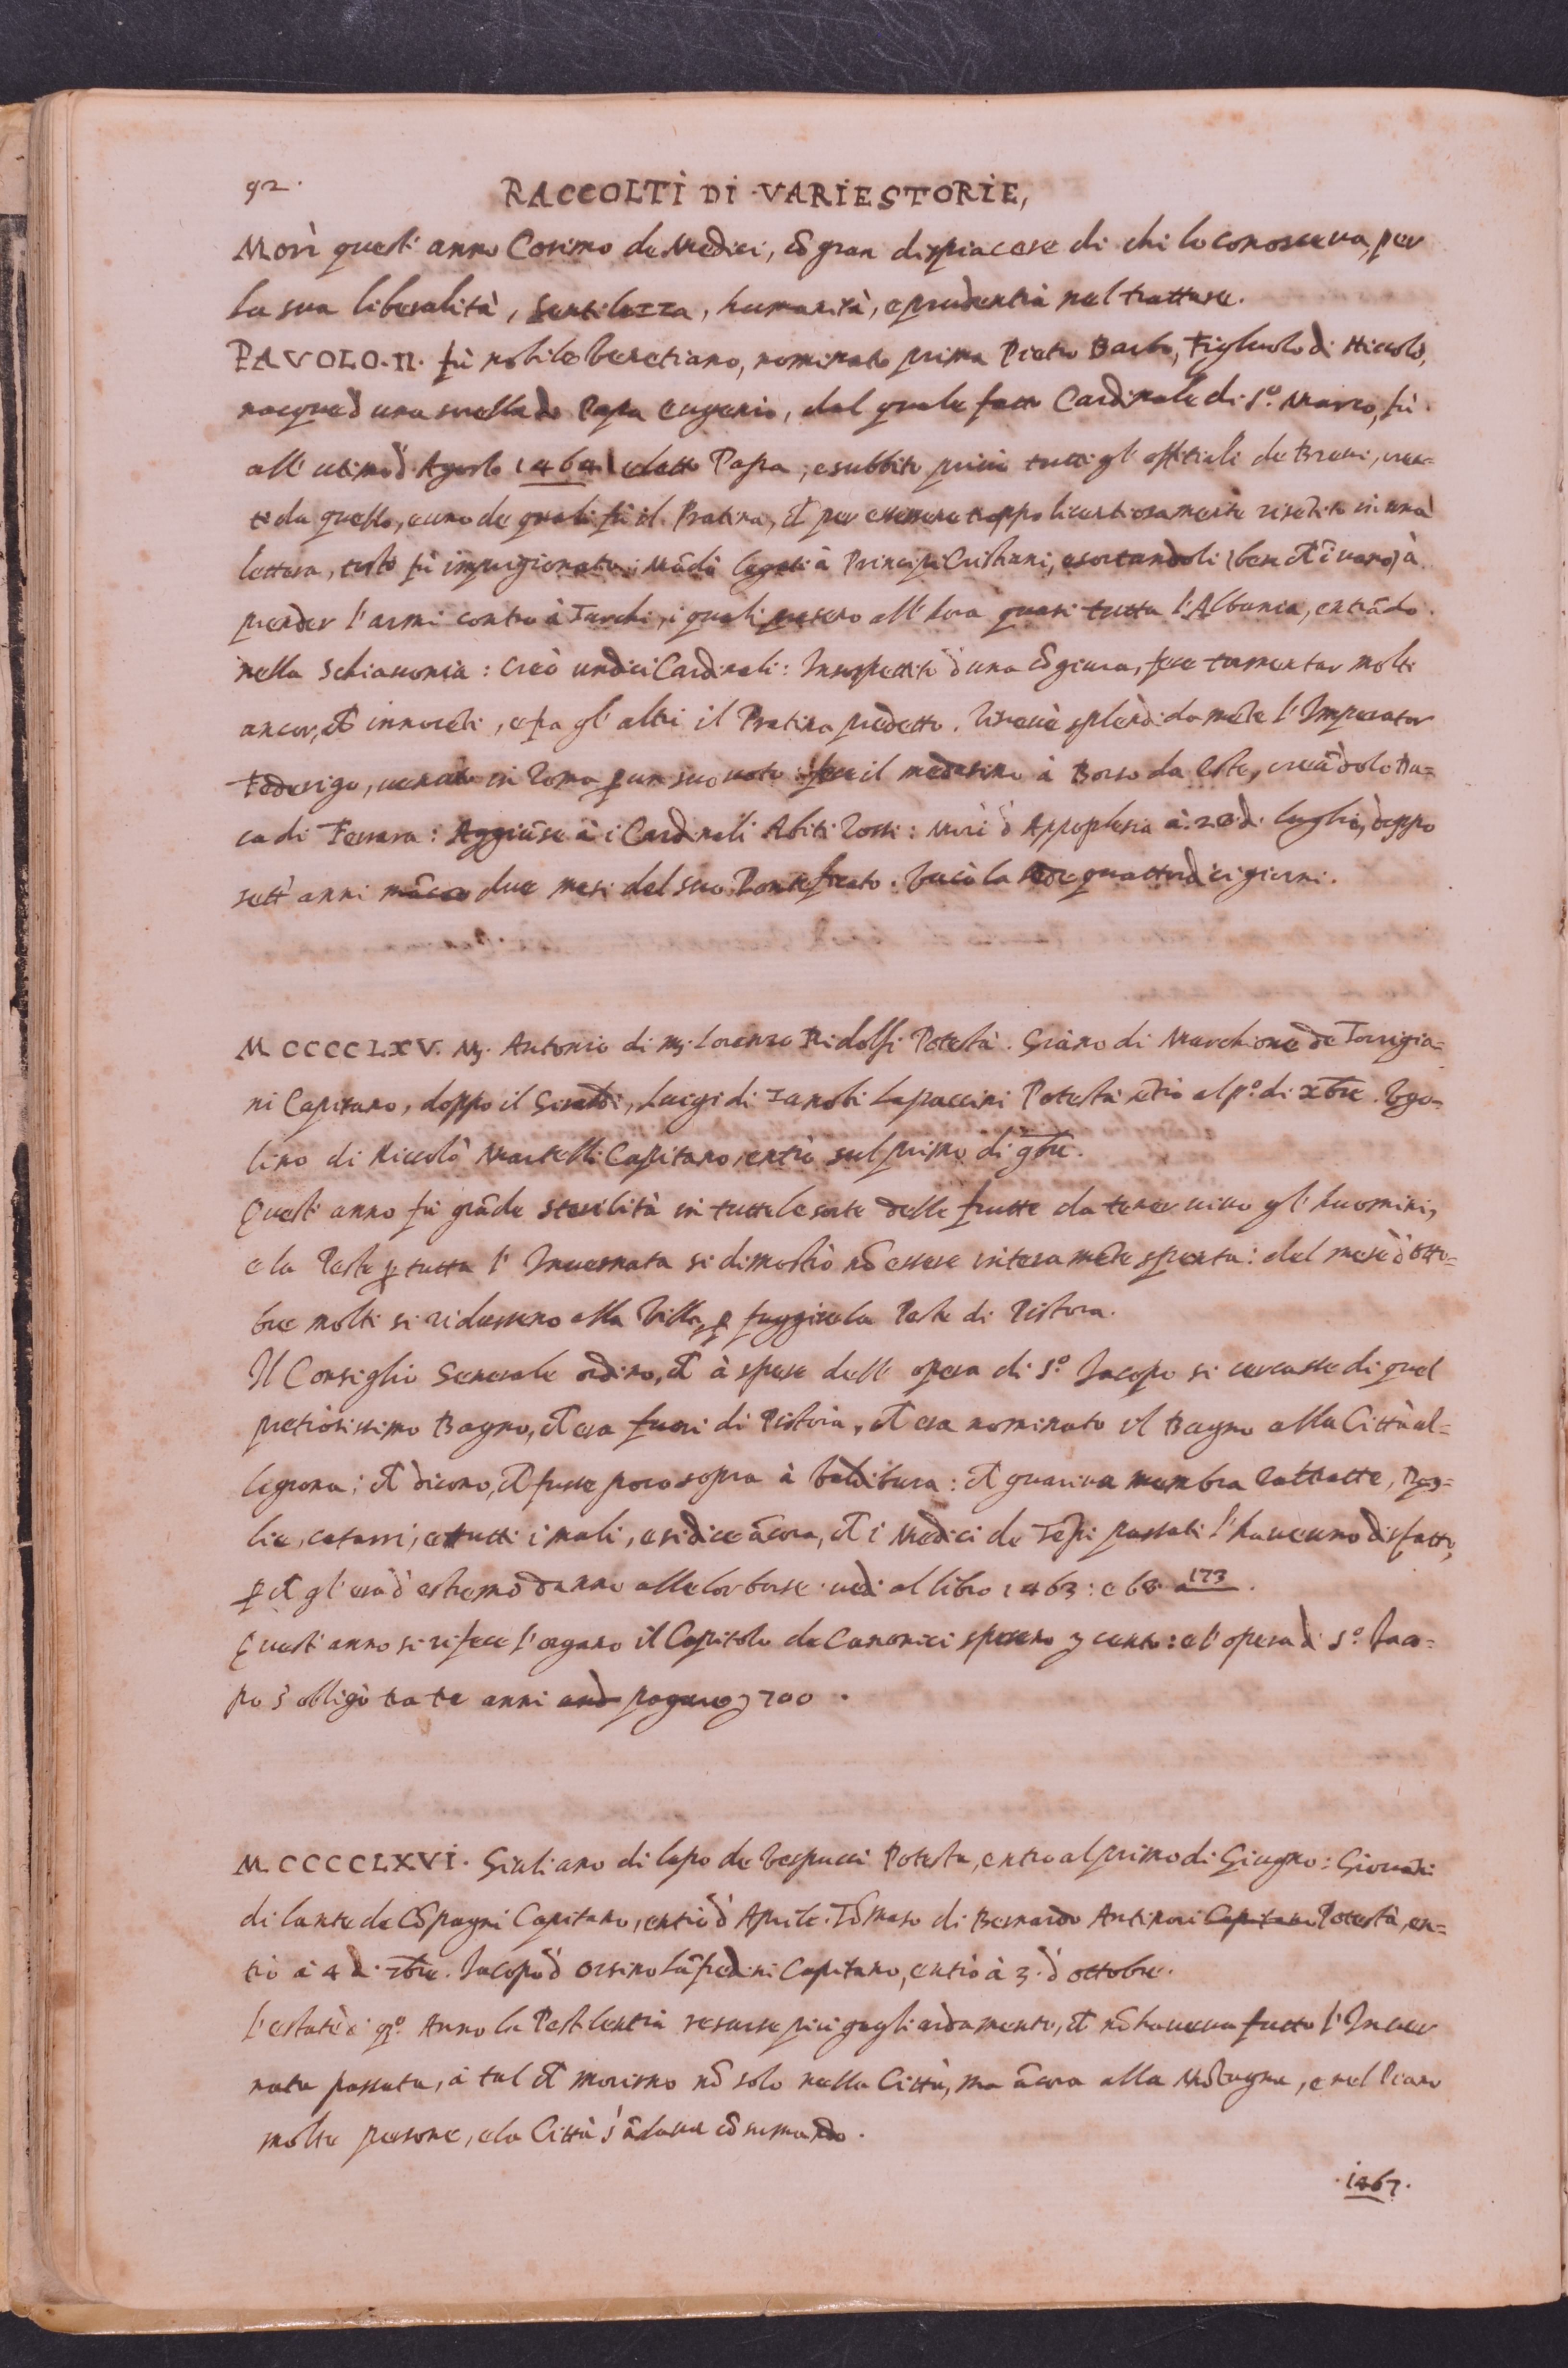 92.
RACCOLTI DI VARIE STORIE,
Morì quest' anno Cosimo de Medici, cō gran dispiacere di chi lo conosceva, per
la sua liberalità, Gentilezza, humanità, e prudentia nel trattare.
PAVOLO. II. fù nobile Venetiano, nominato prima Pietro Barbo, Figliuolo di Niccolò,
nacque d una sorella de Papa Eugenio, dal quale fatto Cardinale di S.º Marco, fù
all' ultimo d' Agosto 1464 eletto Papa; e subbito privò tutti gl' offitiali de Brevi, crea-
ti da quello, e uno de quali fù il Pratina, et per essersene troppo licentiosamente risentito in una
lettera, tosto fù imprigionato: Mādò legati à Principi Cristiani, esortandoli (benche ī vano) à
prender l' armi contro à Turchi, i quali presero all' hora quasi tutta l' Albania, entrādo
nella Schiavonia: Creò undici Cardinali: Insospettito d' una cōgiura, fece tormentar molti
ancor, che innocēti, e fra gl' altri il Pratina predetto. Ricevè splēdidamēte l' Imperator
Federigo, venuto in Roma p un suo voto: fece il medesimo à Borso da Este, creādolo Du-
ca di Ferrara: Aggiūse à i Cardinali Abiti Rossi: Morì d' Appoplesia à 28 di luglio, doppo
sett' anni māco due mesi del suo Pontificato. Vacò la sede quattordici giorni.
M CCCC LXV. Mſ. Antonio di mſ. Lorenzo Ridolfi Potestà. Griāno di Marchionne de Torrigia-
ni Capitano, doppo il Giraldi, Luigi di Zanobi Lapaccini Potestà ētrò al pº. di Xbre. Ugo-
lino di Niccolò Martelli Capitano, entrò sul primo di 9bre.
Quest' anno fù grāde sterilità in tutte le sorte delle frutte da tener vivo gl' huomini,
e la Peste p tutta l' Invernata si dimostrò nō essere interamēte spenta: del mese d' otto-
bre molti si ridussero alla Villa, p fuggire la Peste di Pistoia.
Il Consiglio Generale ordinò, che à spese dell' opera di S.º Jacopo si cercasse di quel
pretiosissimo Bagno, che era fuori di Pistoia, che era nominato il Bagno alla Città al-
legrona; che dicono, che fusse poco sopra à Valdibura: che guariva membra rattratte, Dog-
lie, catarri, e tutti i mali, e si dice ācora, che i Medici de Tēpi passati l' haveano disfatto,
p che gl' era d' estremo danno alle lor borse. vedi al libro 1463: e 68 a 173.
Quest' anno si rifece l' organo il Capitolo de Canonici spesero ʒ cento: e l' opera di S.º Jaco-
po s' obligò tra tre anni pagare ʒ 700.
M CCCCLXVI. Giuliano di Lapo de Vespucci Potestà, entrò al primo di Giugno: Giovāni
di Lante de Cōpagni Capitano, entrò d' Aprile. Tōmaso di Bernardo Antinori Capitano Potestà, en-
trò à 4 di Xbre. Jacopo d' Orsino Lāfredini Capitano, entrò à 3. d' ottobre.
L' estate di qº. Anno la Pestilentia resurse più gagliardamente, che nō haveva fatto l' Inver
nata passata, à tal che morirno nō solo nella Città, ma ācora alla Mōtagna, e nel Piano
molte persone, e la Città s' ādava cōsumando.
.1467.